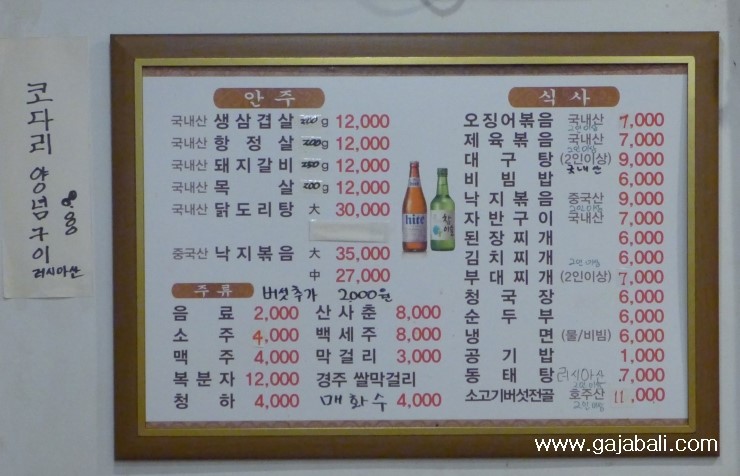 코다리 양념구이
러시아산
안 주
국내산 생삼겹살 200g 12,000
국내산 항정살 200g 12,000
국내산 돼지갈비 250g 12,000
국내산 목 살 200g 12,000
국내산 닭도리탕 大 30,000
중국산 낙지볶음 大 35,000
中 27,000
버섯추가 2000원
hite
주 류
음 료 2,000 산사춘 8,000
소 주 4,000 백세주 8,000
맥 주 4,000 막걸리 3,000
복분자 12,000 경주 쌀막걸리
청 하 4,000 매화수 4,000
식 사
오징어볶음 국내산 7,000
2인이상
제육볶음 국내산 7,000
2인이상
대구탕 (2인이상) 9,000
국내산
비빔밥 6,000
낙지볶음 중국산 9,000
2인이상
자반구이 국내산 7,000
된장찌개 6,000
김치찌개 2인이상 6,000
부대찌개 (2인이상) 7,000
청국장 6,000
순두부 6,000
냉 면 (물/비빔) 6,000
공기밥 1,000
동태탕 러시아산 7,000
2인이상
소고기버섯전골 호주산 11,000
2인이상
www.gajabali.com